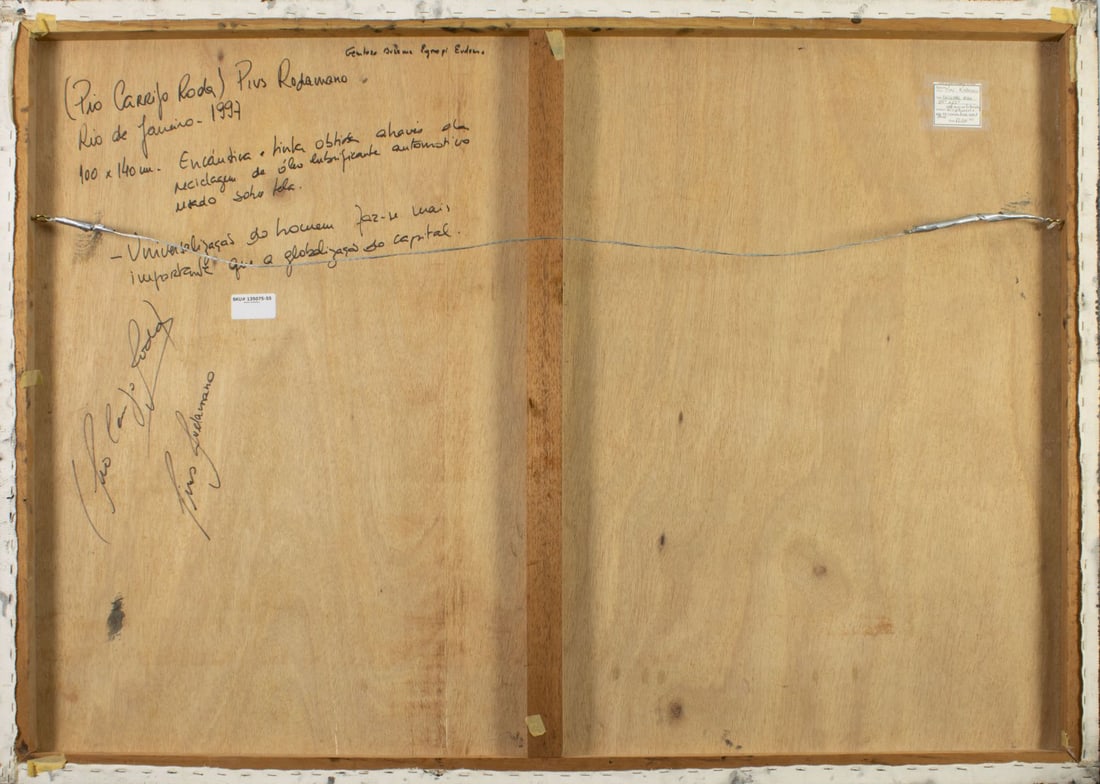 (Pio Carrijo Roda) Pius Rodamano
Rio de Janeiro - 1997
100 x 140 cm. Encáustica e tinta obtida através da
reciclagem de óleo lubrificante automotivo
usado sobre tela.
- Universalização do homem faz-se mais
importante que a globalização do capital.
SKU# 135075-55
(Pio Carrijo Roda)
Pius Rodamano